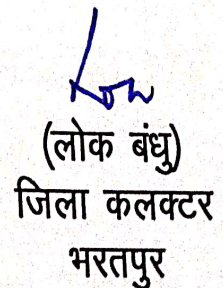 (लोक बंधु)
जिला कलक्टर
भरतपुर